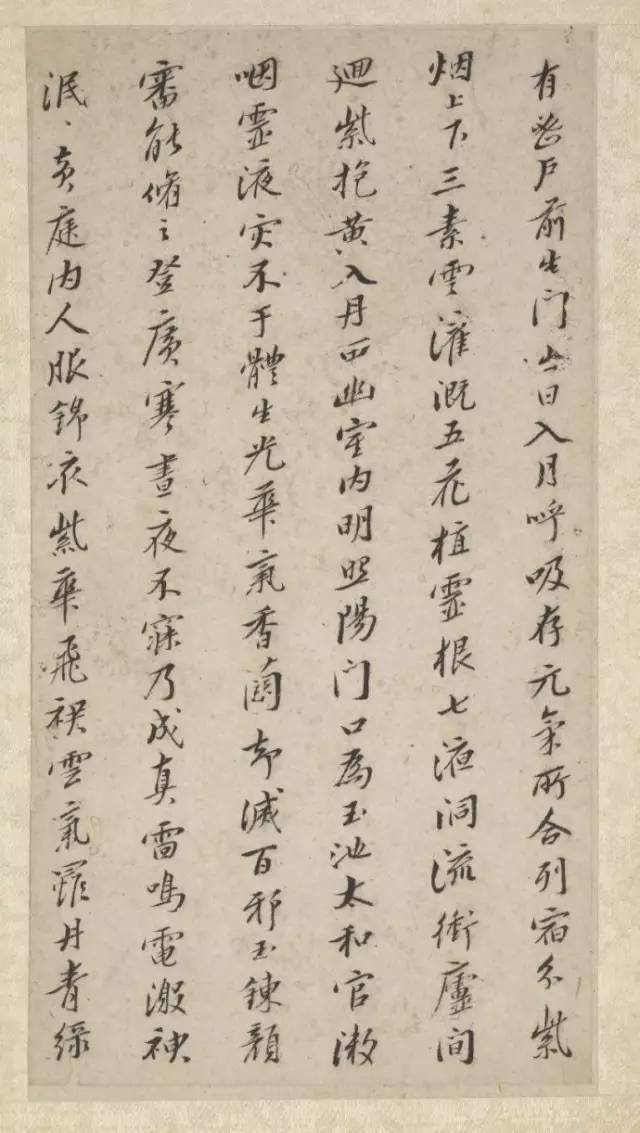 有密戶前生門出日入月呼吸存元氣所合列宿分紫
烟上下三素雲灌溉五花植靈根七液洞流衝廬間
迴紫抱黃入丹田幽室內明照陽門口為玉池太和官漱
咽靈液灾不干體生光華氣香蘭却滅百邪玉鍊顏
審能脩之登廣寒晝夜不寐乃成真雷鳴電激神
泯〻黃庭內人服錦衣紫華飛裙雲氣羅丹青綠